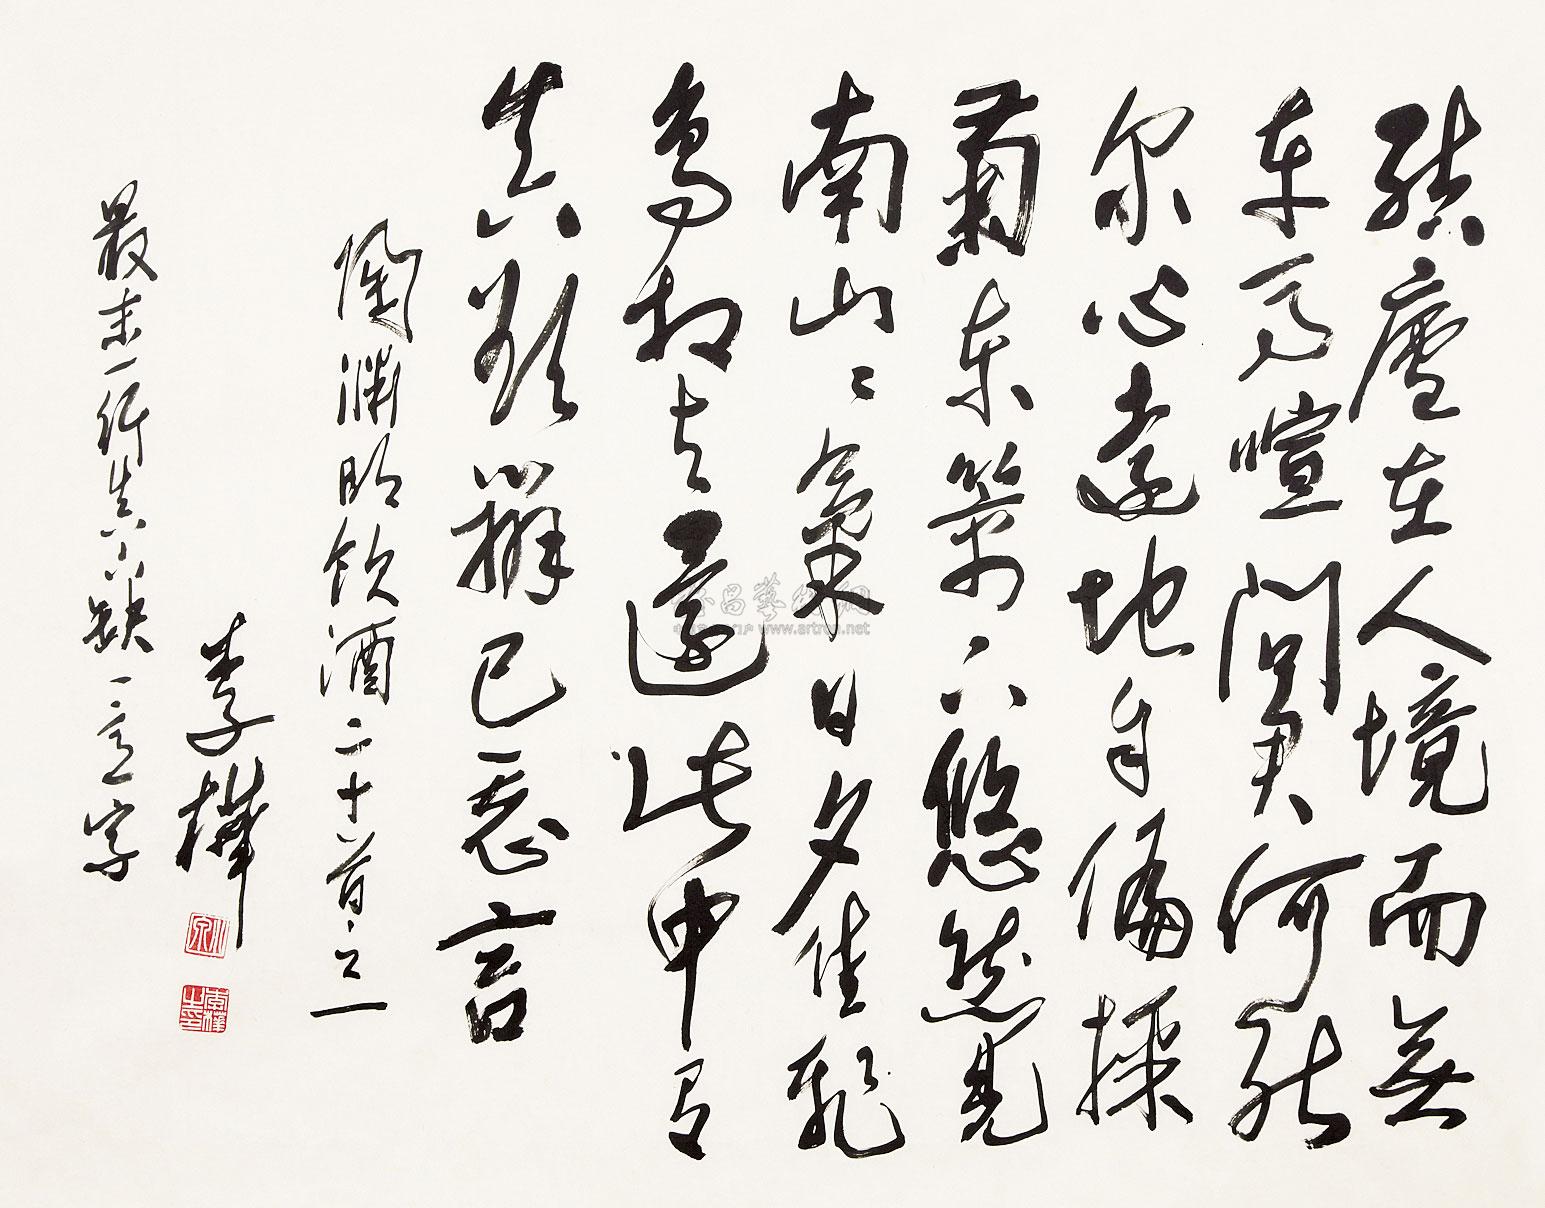 結廬在人境而無
車馬喧問君何能
尔心遠地自偏採
菊東籬下悠然見
南山〻氣日夕佳飛
鳥相与還此中有
真欲辨已忘言
陶渊明飲酒二十首之一
李樺
最末一行真下缺一意字
www.artron.net